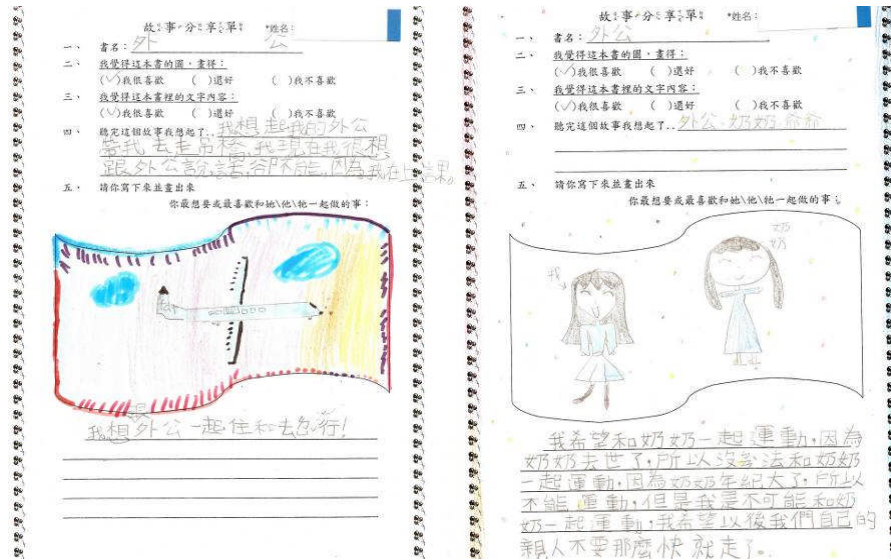 故事分享單 *姓名：
一、 書名：外 公
二、 我覺得這本書的圖，畫得：
(✓)我很喜歡 ( )還好 ( )我不喜歡
三、 我覺得這本書裡的文字內容：
(✓)我很喜歡 ( )還好 ( )我不喜歡
四、 聽完這個故事我想起了..我想起我的外公
帶我去走吊橋，我現在我很想
跟外公說話，卻不能，因為我在上課。
五、 請你寫下來並畫出來
你最想要或最喜歡和她\他\牠一起做的事：
我想跟外公一起住和去旅行！
故事分享單 *姓名：
一、 書名：外公
二、 我覺得這本書的圖，畫得：
(✓)我很喜歡 ( )還好 ( )我不喜歡
三、 我覺得這本書裡的文字內容：
(✓)我很喜歡 ( )還好 ( )我不喜歡
四、 聽完這個故事我想起了..外公、奶奶、爺爺
五、 請你寫下來並畫出來
你最想要或最喜歡和她\他\牠一起做的事：
奶奶
我
我希望和奶奶一起運動，因為
奶奶去世了，所以沒辦法和奶奶
一起運動，因為奶奶年紀大了，所以
不能運動，但是我是不可能和奶
奶一起運動，我希望以後我們自己的
親人不要那麼快就走了。